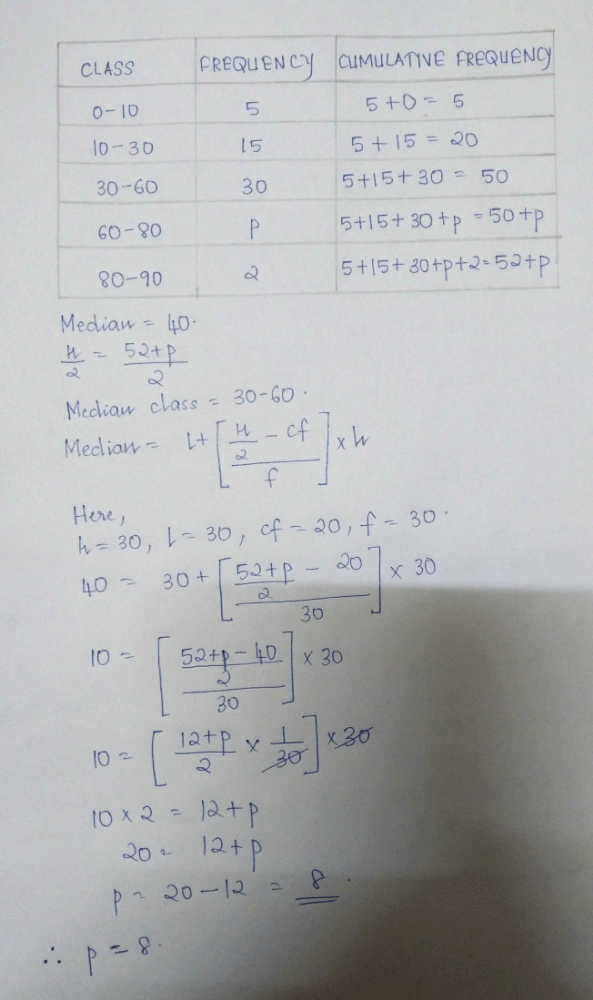 CLASS FREQUENCY CUMULATIVE FREQUENCY
0-10 5 5+0= 5
10-30 15 5+15 = 20
30-60 30 5+15+30 = 50
60-80 p 5+15+30+p =50+p
80-90 2 5+15+30+p+2=52+p
Median = 40.
n/2 = 52+p/2
Median class = 30-60.
Median = l+[(n/2 - cf)/f]×h
Here,
h=30, l=30, cf=20, f=30.
40 = 30+[(52+p/2 - 20)/30]× 30
10 = [(52+p-40/2)/30]×30
10= [12+p/2 × 1/30]×30
10×2 = 12+p
20= 12+p
p= 20-12 = 8.
∴ p=8.